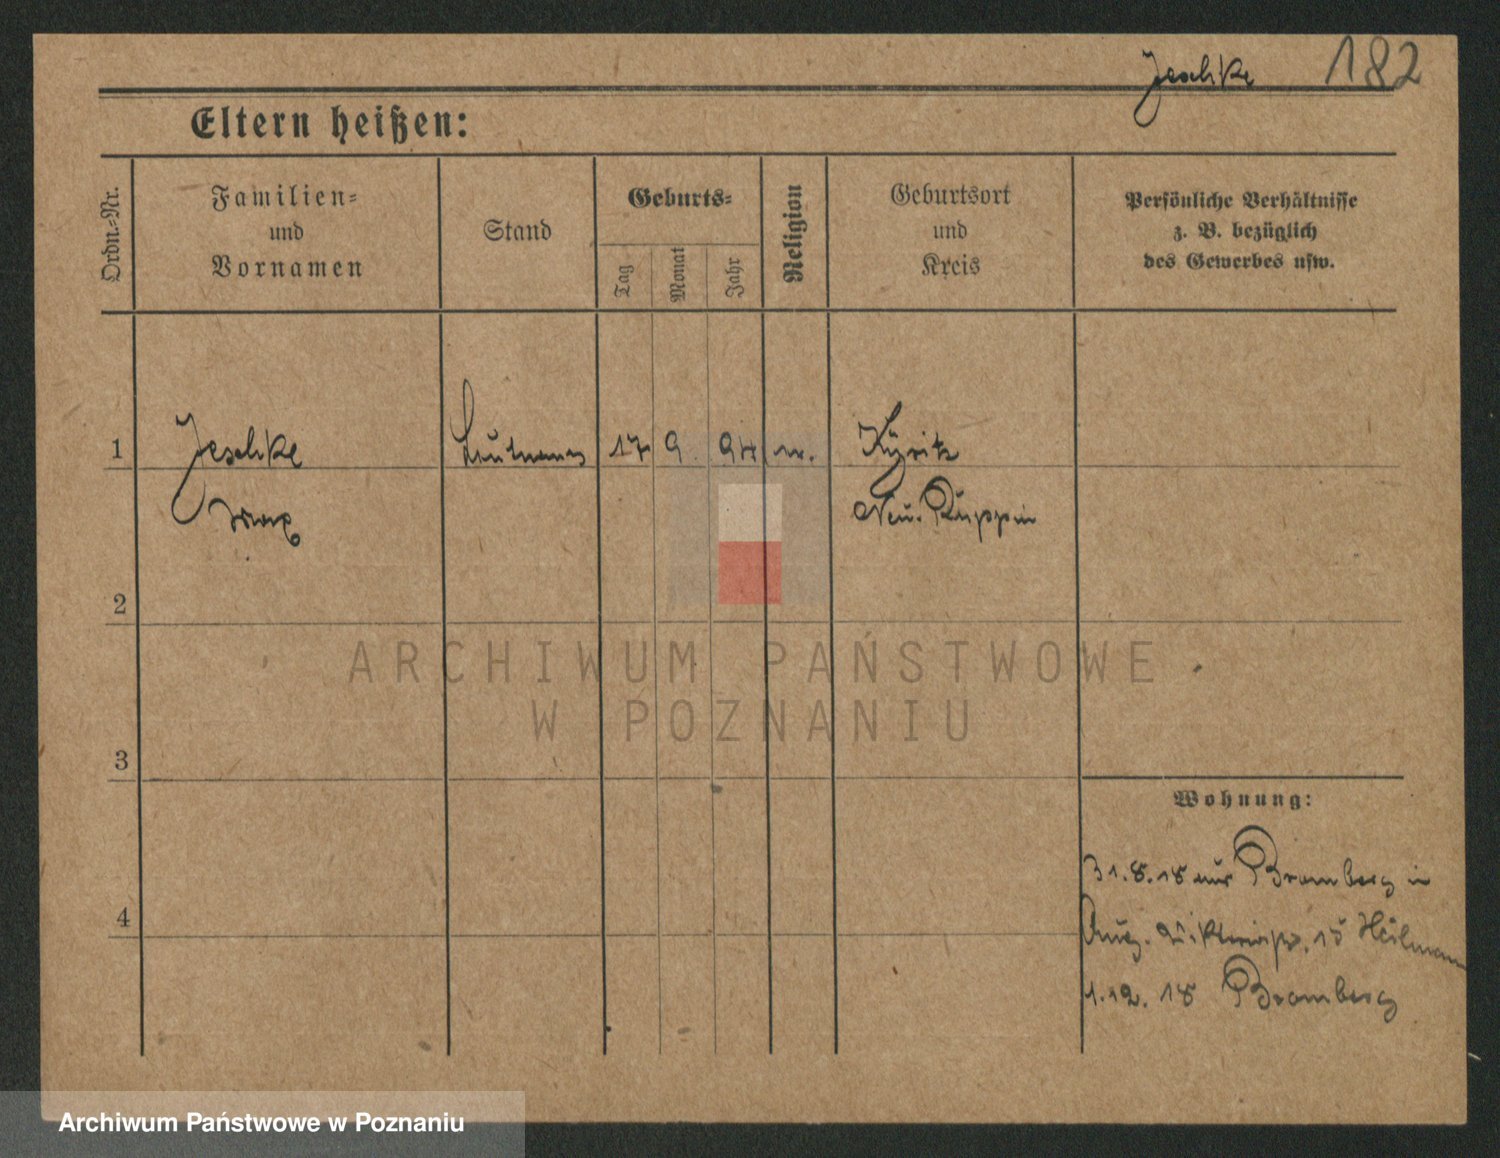 Jeschke 182
Eltern heißen:
Ordn.-Nr.
Familien-
und
Vornamen
Stand
Geburts-
Tag
Monat
Jahr
Religion
Geburtsort
und
Kreis
Persönliche Verhältnisse
z. B. bezüglich
des Gewerbes usw.
1 Jeschke Leutnant 17 9. 97 ev. Kyritz
Max Neu-Ruppin
2
ARCHIWUM PAŃSTWOWE
W POZNANIU
3
Wohnung:
31.8.18 aus Bromberg in
4
Aug. Viktoriastr. 15 Heilmann
1.12.18 Bromberg
Archiwum Państwowe w Poznaniu